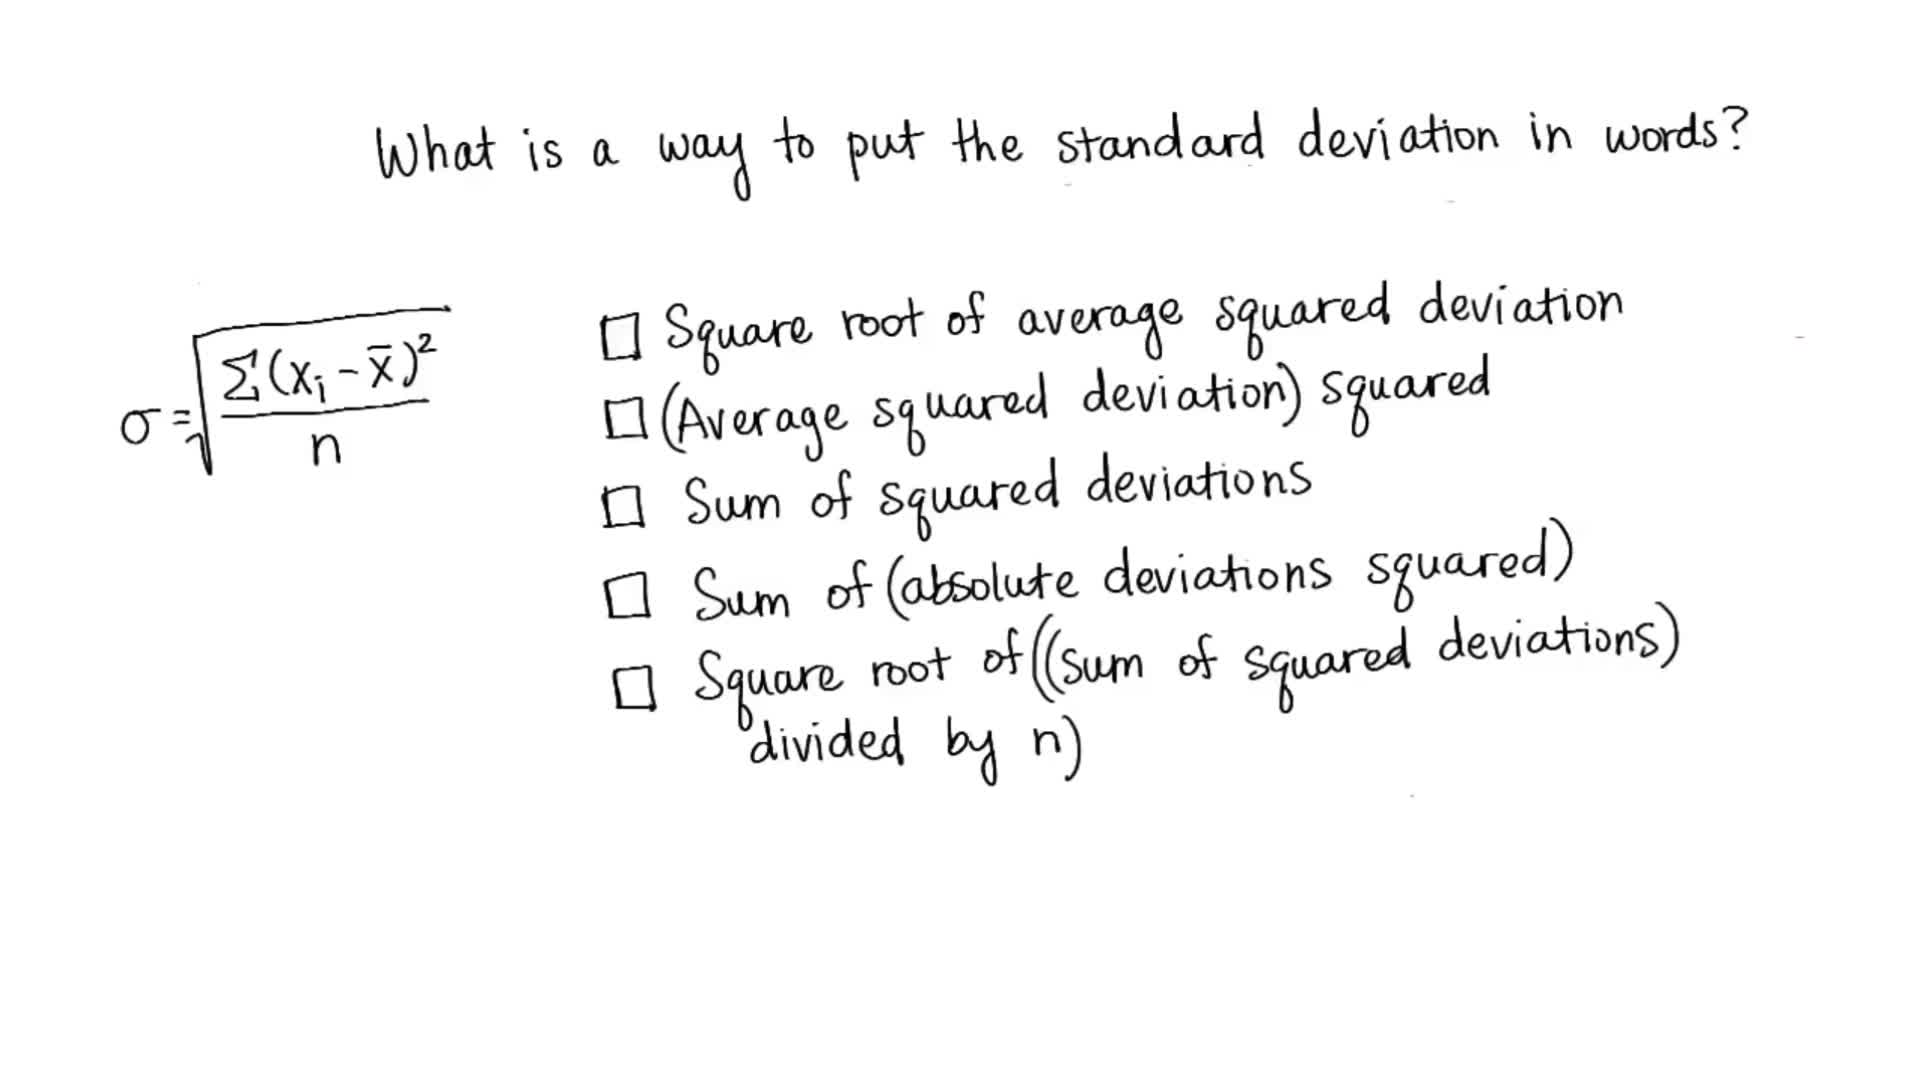 What is a way to put the standard deviation in words?
σ = √(Σ(xᵢ - x̄)² / n)
□ Square root of average squared deviation
□ (Average squared deviation) squared
□ Sum of squared deviations
□ Sum of (absolute deviations squared)
□ Square root of ((sum of squared deviations)
divided by n)